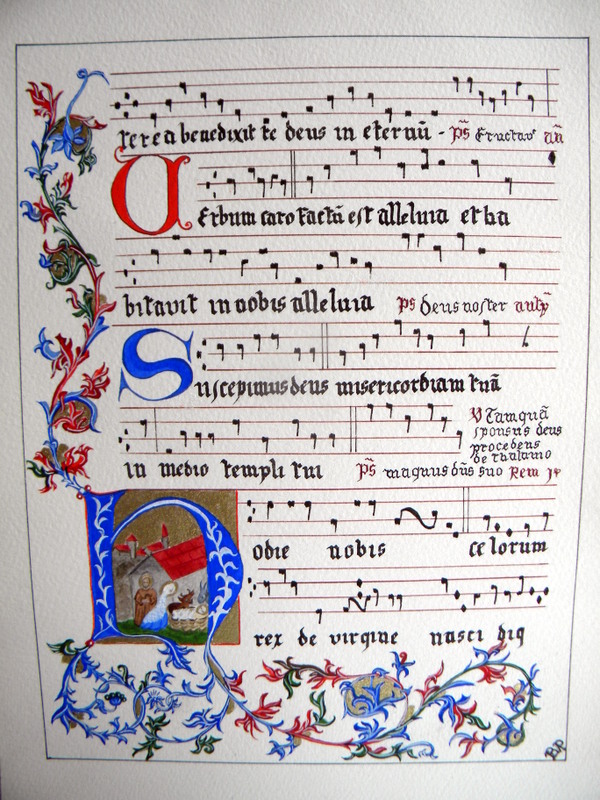 terea benedixit te deus in eternū - ps̄ Eructav̄ an̄
Uerbum caro factū est alleluia et ha
bitavit in nobis alleluia ps deus noster
Suscepimus deus misericordiam tuā
in medio templi tui ps̄ magnus dn̄s
V Tamquā
sponsus deus
procedens
de thalamo
Hodie nobis celorum
rex de virgine nasci dig